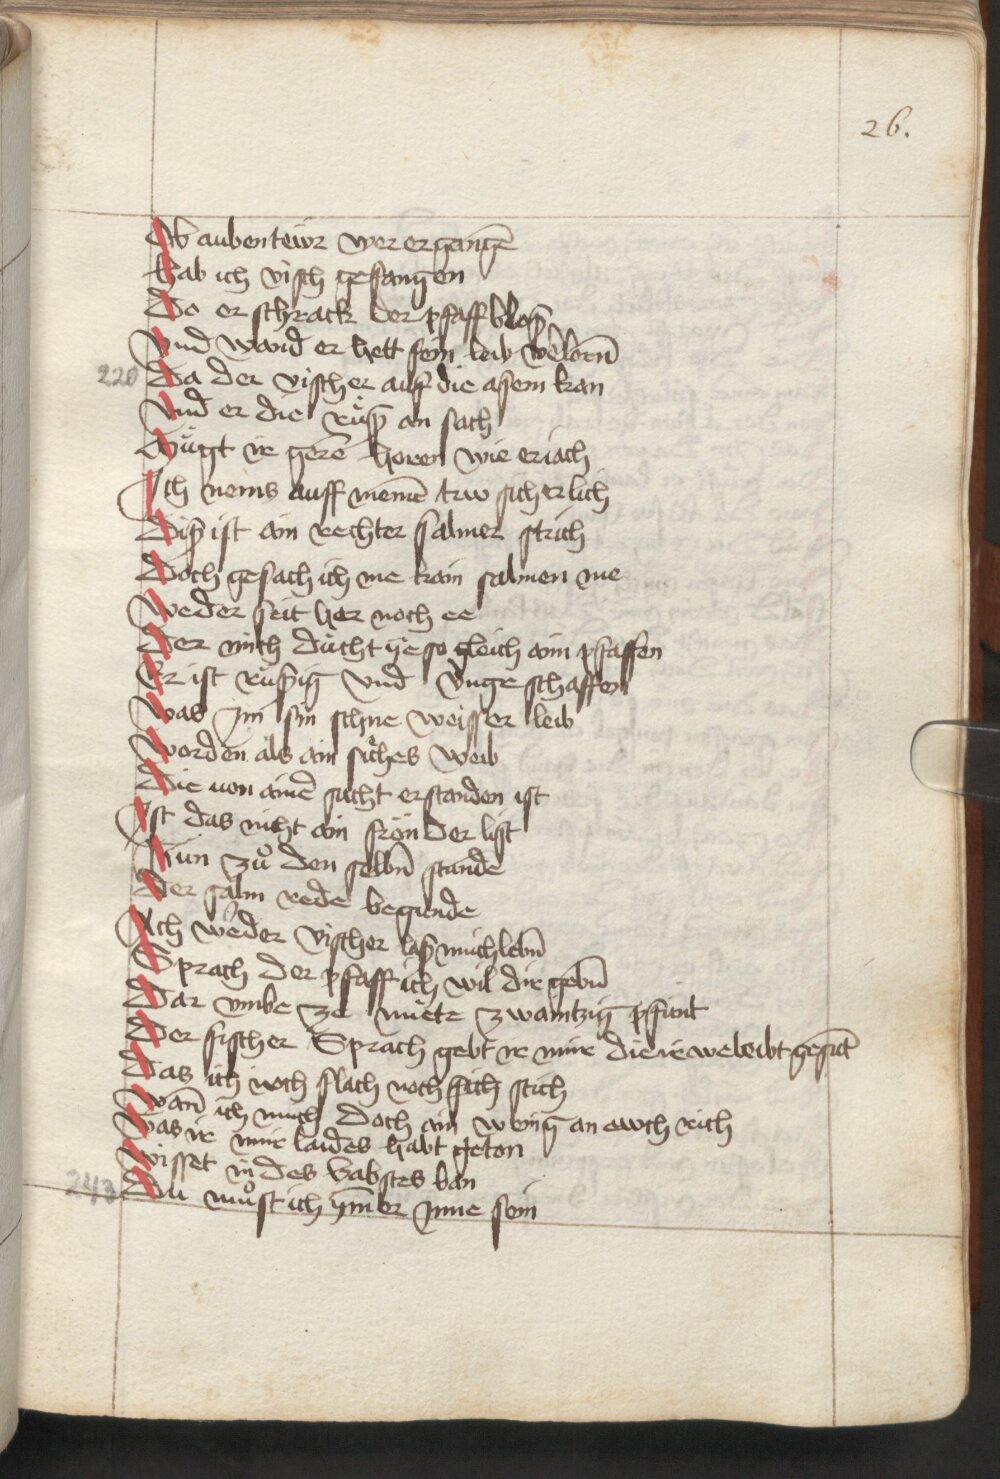 26.
Ob aubenteivr wer ergangē
Hab ich visch gefangen
Do er schrack der pfaff bloß
Vnd wand er hett sein leib v̉lorn̄
220 Da der vischer auf die asem kan
Vnd er die rüß an sach
Mügt ir gerē horen wie er iach
Ich nems auff meinē trw sicherlich
Diß ist ain rechter salmer strich
Doch gesach ich me kain salmen nie
Weder seit her noch ee
Der mich dücht ye so gleich ain pfaffen
Er ist rüßig vnd vnge schaffen
Was Im sin schne weisser leib
Worden als ain siches weib
Die von ainē sücht erstanden ist
Ist das nicht ain frönder list
Nun zů den selbn̄ stunde
Der salm rede begunde
Ach werder vischer laß mich lebn̄
Sprach der pfaff ich wil dir gebn̄
Dar vmbe ze miete zwaintzig pfunt
Der fischer Sprach gebt ir mir die ir weleibt gesūt
Das ich noch slach noch stich
Wan̄ ich mich doch ain wenig an ewch rich
Was ir mir laides habt geton
Wisset in des babstes ban
243 Du můst ich ym̄er Inne sein